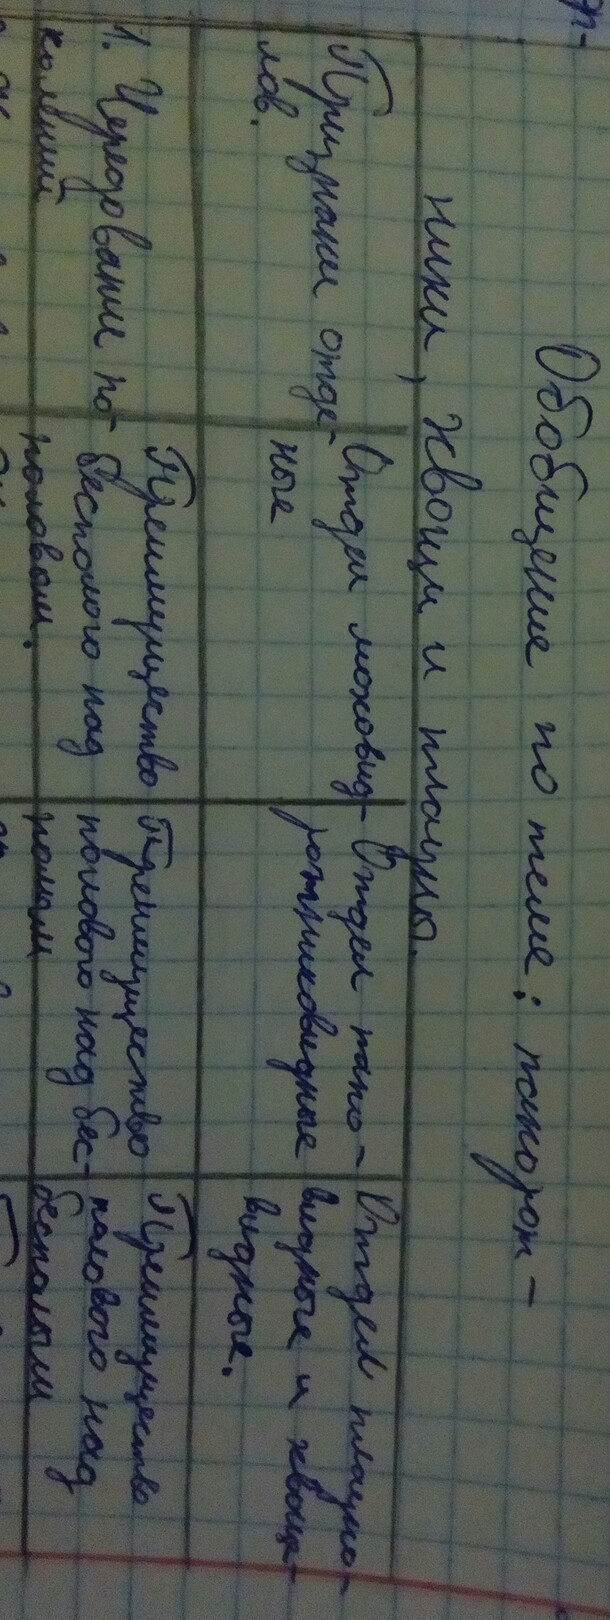 Обобщение по теме: папорот-
ники, хвощи и плауны.
Признаки отде-
лов.
Отдел моховид-
ные
Отдел папо-
ротниковидные
Отдел плауно-
видные и хвоще-
видные.
1. Чередование по-
колений
Преимущество
бесполого над
половым.
Преимущество
полового над бес-
полым
Преимущество
полового над
бесполым